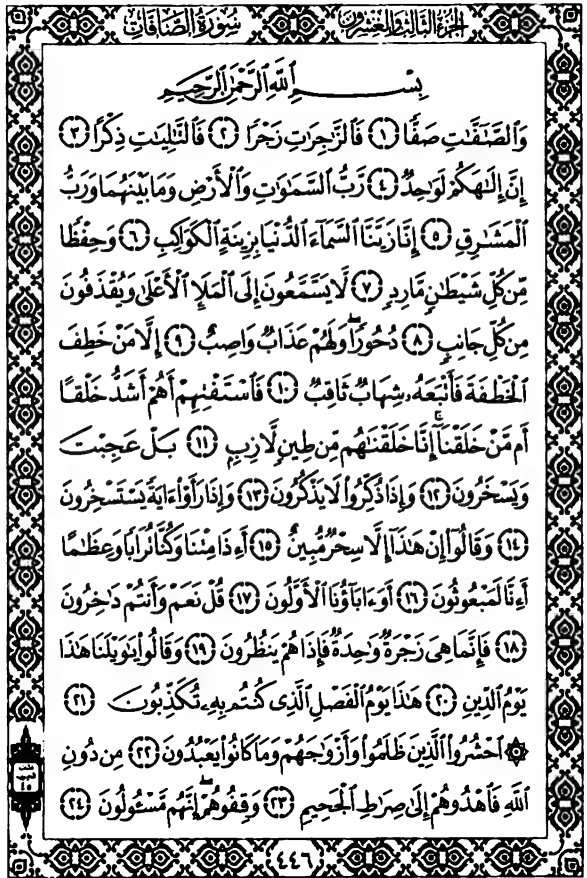 الجزء الثالث والعشرون سورة الصافات
بِسْمِ اللَّهِ الرَّحْمَٰنِ الرَّحِيمِ
وَالصَّٰٓفَّٰتِ صَفًّا ١ فَالزَّٰجِرَٰتِ زَجْرًا ٢ فَالتَّٰلِيَٰتِ ذِكْرًا ٣
إِنَّ إِلَٰهَكُمْ لَوَٰحِدٌ ٤ رَّبُّ السَّمَٰوَٰتِ وَالْأَرْضِ وَمَا بَيْنَهُمَا وَرَبُّ
الْمَشَٰرِقِ ٥ إِنَّا زَيَّنَّا السَّمَآءَ الدُّنْيَا بِزِينَةٍ الْكَوَاكِبِ ٦ وَحِفْظًا
مِّن كُلِّ شَيْطَٰنٍ مَّارِدٍ ٧ لَّا يَسَّمَّعُونَ إِلَى الْمَلَإِ الْأَعْلَىٰ وَيُقْذَفُونَ
مِن كُلِّ جَانِبٍ ٨ دُحُورًا ۖ وَلَهُمْ عَذَابٌ وَاصِبٌ ٩ إِلَّا مَنْ خَطِفَ
الْخَطْفَةَ فَأَتْبَعَهُۥ شِهَابٌ ثَاقِبٌ ١٠ فَاسْتَفْتِهِمْ أَهُمْ أَشَدُّ خَلْقًا
أَم مَّنْ خَلَقْنَآ ۚ إِنَّا خَلَقْنَٰهُم مِّن طِينٍ لَّازِبٍۭ ١١ بَلْ عَجِبْتَ
وَيَسْخَرُونَ ١٢ وَإِذَا ذُكِّرُوا لَا يَذْكُرُونَ ١٣ وَإِذَا رَأَوْا ءَايَةً يَسْتَسْخِرُونَ
١٤ وَقَالُوٓا إِنْ هَٰذَآ إِلَّا سِحْرٌ مُّبِينٌ ١٥ أَءِذَا مِتْنَا وَكُنَّا تُرَابًا وَعِظَٰمًا
أَءِنَّا لَمَبْعُوثُونَ ١٦ أَوَءَابَآؤُنَا الْأَوَّلُونَ ١٧ قُلْ نَعَمْ وَأَنتُمْ دَٰخِرُونَ
١٨ فَإِنَّمَا هِيَ زَجْرَةٌ وَٰحِدَةٌ فَإِذَا هُمْ يَنظُرُونَ ١٩ وَقَالُوا يَٰوَيْلَنَا هَٰذَا
يَوْمُ الدِّينِ ٢٠ هَٰذَا يَوْمُ الْفَصْلِ الَّذِى كُنتُم بِهِۦ تُكَذِّبُونَ ٢١
۞ احْشُرُوا الَّذِينَ ظَلَمُوا وَأَزْوَٰجَهُمْ وَمَا كَانُوا يَعْبُدُونَ ٢٢ مِن دُونِ
اللَّهِ فَاهْدُوهُمْ إِلَىٰ صِرَٰطِ الْجَحِيمِ ٢٣ وَقِفُوهُمْ ۖ إِنَّهُم مَّسْـُٔولُونَ ٢٤
٤٤٦